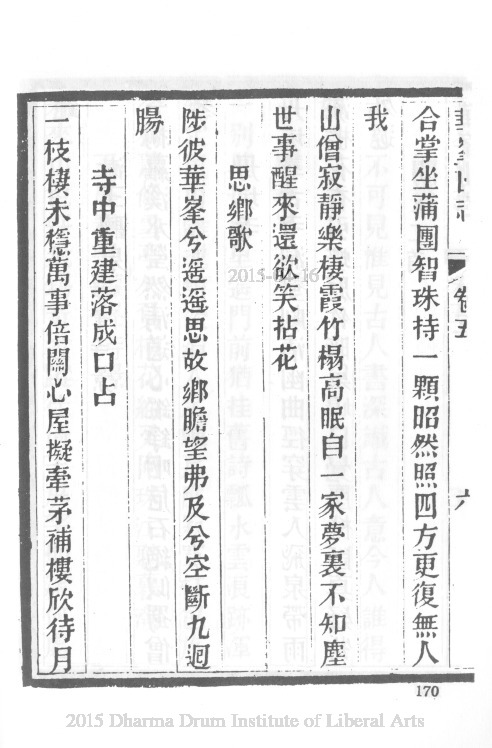 卷五
六
合掌坐蒲團智珠持一顆昭然照四方更復無人
我
山僧寂靜樂棲霞竹榻高眠自一家夢裏不知塵
世事醒來還欲笑拈花
思鄉歌
陟彼華峯兮遥遥思故鄉瞻望弗及兮空斷九迴
腸
寺中重建落成口占
一枝棲未穩萬事倍關心屋擬牽茅補樓欣待月
170
2015 Dharma Drum Institute of Liberal Arts